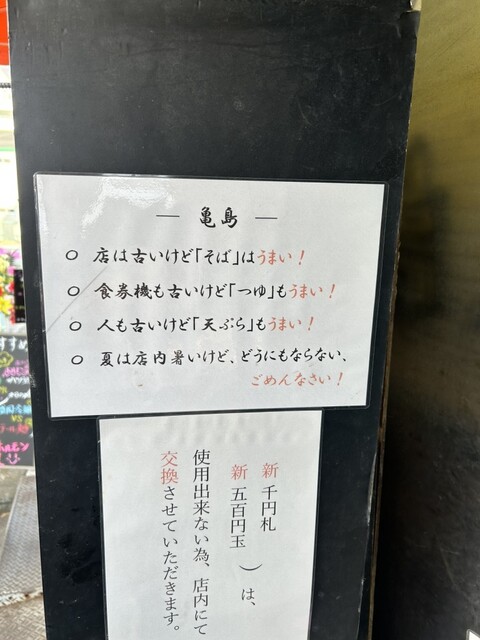 ― 亀島 ―
○ 店は古いけど「そば」はうまい！
○ 食券機も古いけど「つゆ」もうまい！
○ 人も古いけど「天ぷら」もうまい！
○ 夏は店内暑いけど、どうにもならない、
ごめんなさい！
新 千円札
新 五百円玉
）は、
使用出来ない為、店内にて
交換させていただきます。